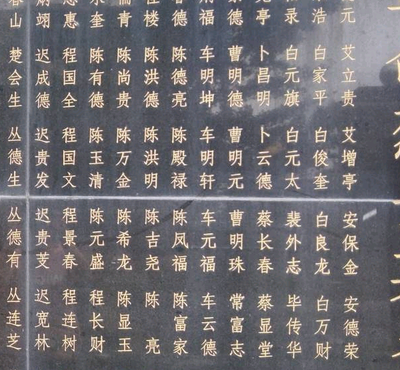 元 艾立贵 艾增亭 安保金 安德荣
浩 白家平 白俊奎 白良龙 白万财
白元旗 白元太 裴外志 毕传华
亭 卜昌明 卜云德 蔡长春 蔡显堂
德 曹明德 曹明元 曹明珠 常富志
福 车明坤 车明轩 车元福 车云德
德 陈德亮 陈殿禄 陈凤福 陈富家
楼 陈洪德 陈洪明 陈吉尧 陈亮
青 陈尚贵 陈万金 陈希龙 陈显玉
奎 陈有德 陈玉清 陈元盛 程长财
惠 程国全 程国文 程景春 程连树
翊 迟成德 迟贵发 迟贵芰 迟宽林
山 楚会生 丛德生 丛德有 丛连芝